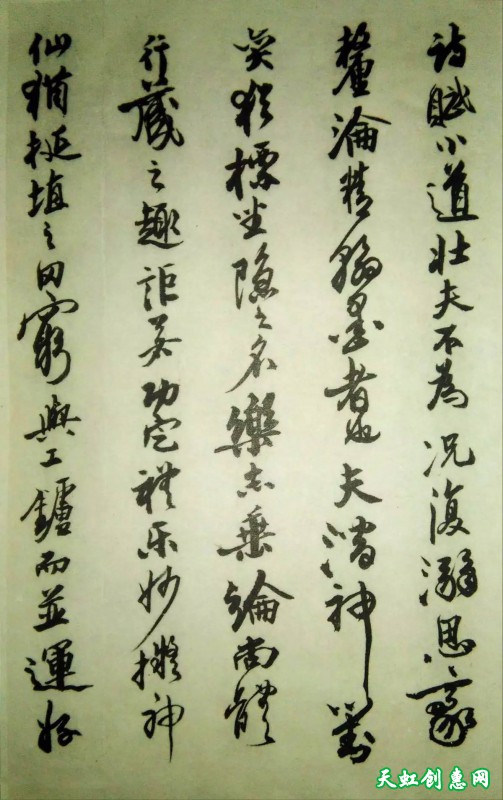 詩賦小道壯夫不為况復溺思豪
釐淪精翰墨者也夫潛神對
奕猶標坐隱之名樂志垂綸尚體
行藏之趣詎若功定禮乐妙擬神
仙猶挻埴之罔窮與工鑪而並運好
天虹创惠网